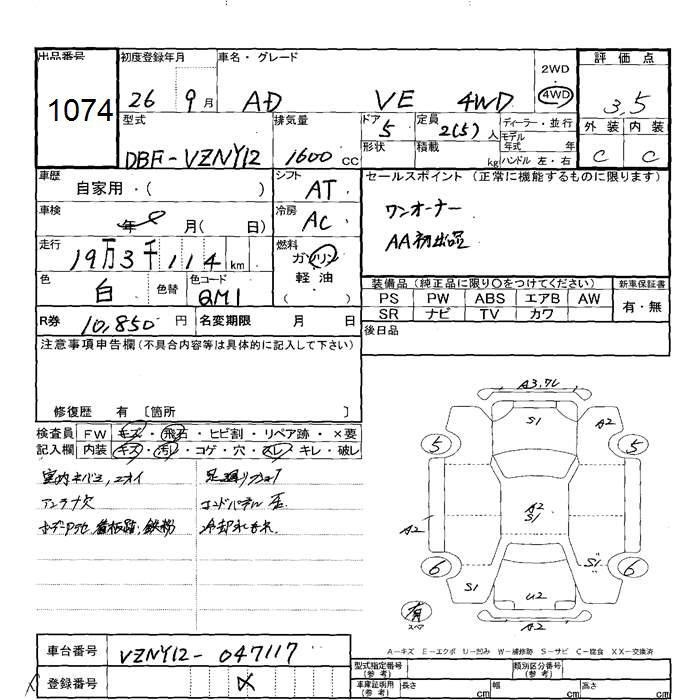 出品番号 初度登録年月 車名・グレード 2WD 評価点
1074 26 9月 AD VE 4WD 4WD 3.5
型式 排気量 ドア 定員 ディーラー・並行 外装 内装
DBF-VZNY12 1600cc 5 2(5)人 モデル年式 年
形状 積載 kg ハンドル 左・右 C C
車歴 自家用・( ) シフト AT セールスポイント (正常に機能するものに限ります)
車検 年 月( 日) 冷房 AC ワンオーナー
走行 19万3千114km 燃料 ガソリン AA初出品
軽油
( )
色 白 色替 色コード QM1 装備品(純正品に限り○をつけてください) 新車保証書
PS PW ABS エアB AW 有・無
SR ナビ TV カワ
R券 10,850円 名変期限 月 日 後日品
注意事項申告欄(不具合内容等は具体的に記入して下さい)
修復歴 有 〔箇所 〕
検査員 FW キズ・飛石・ヒビ割・リペア跡・×要
記入欄 内装 キズ・汚レ・コゲ・穴・スレ・キレ・破レ
アンテナ欠 エンドパネル歪
A3.7L
S1
A2
5 5
A2
S1
A2
S1
6 6
S1 U2
有
スペア
A2
A-キズ E-エクボ U-凹み W-補修跡 S-サビ C-腐食 XX-交換済
車台番号 VZNY12-047117
登録番号
型式指定番号(参考) 類別区分番号(参考)
車庫証明用(参考) 長さ cm 幅 cm 高さ cm